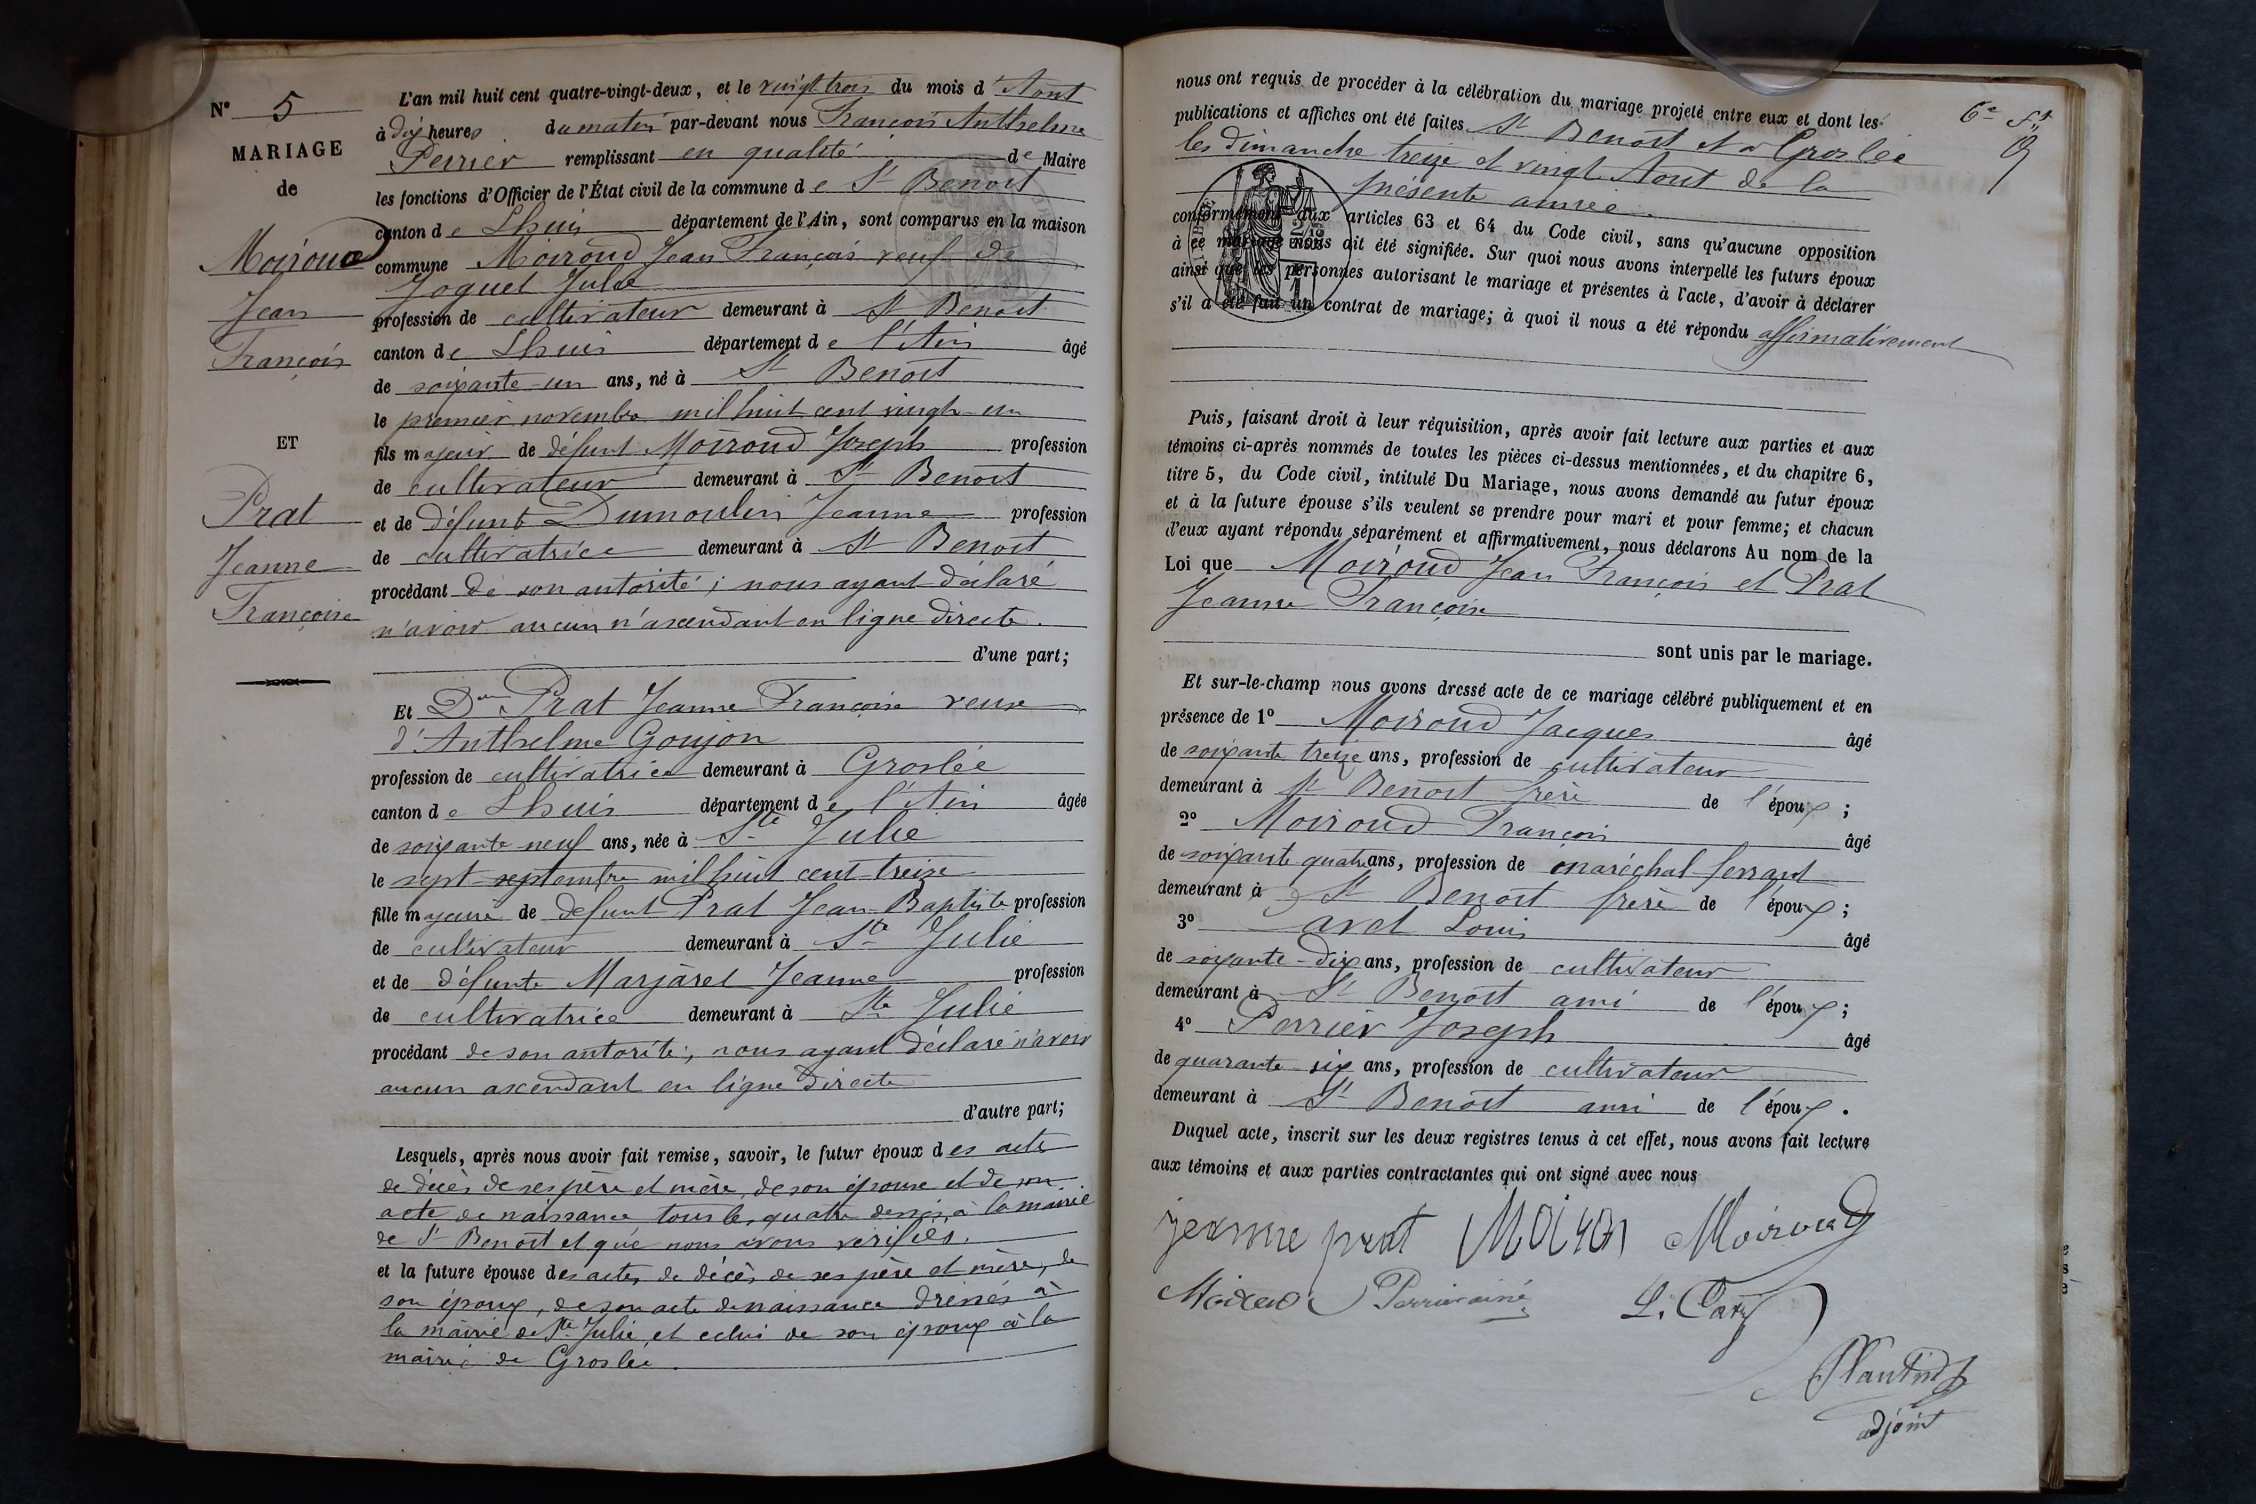 N° 5
MARIAGE
de
Moiroud
Jean
François
ET
Prat
Jeanne
Françoise
L'an mil huit cent quatre-vingt-deux, et le vingt trois du mois d'Aout
à dix heures du matin par-devant nous François Anthelme
Perrier remplissant en qualité de Maire
les fonctions d'Officier de l'État civil de la commune de St Benoit
canton de Lhuis département de l'Ain, sont comparus en la maison
commune Moiroud Jean François veuf de
Joguet Julie
profession de cultivateur demeurant à St Benoit
canton de Lhuis département de l'Ain âgé
de soixante-un ans, né à St Benoit
le premier novembre mil huit cent vingt-un
fils majeur de défunt Moiroud Joseph profession
de cultivateur demeurant à St Benoit
et de défunte Dumoulin Jeanne profession
de cultivatrice demeurant à St Benoit
procédant de son autorité; nous ayant déclaré
n'avoir aucun n'ascendant en ligne directe.
d'une part;
Et Dme Prat Jeanne Françoise veuve
d'Anthelme Goujon
profession de cultivatrice demeurant à Groslée
canton de Lhuis département de l'Ain âgée
de soixante neuf ans, née à Ste Julie
le sept septembre mil huit cent treize
fille majeure de defunt Prat Jean-Baptiste profession
de cultivateur demeurant à Ste Julie
et de défunte Marjarel Jeanne profession
de cultivatrice demeurant à Ste Julie
procédant de son autorité; nous ayant déclaré n'avoir
aucun ascendant en ligne directe
d'autre part;
Lesquels, après nous avoir fait remise, savoir, le futur époux des acte
de décès de ses père et mère, de son épouse et de son
acte de naissance tous les quatre dressés à la mairie
de St Benoit et que nous avons vérifiés.
et la future épouse des actes de décès de ses père et mère, de
son époux, de son acte de naissance dressés à
la mairie de Ste Julie et celui de son époux à la
mairie de Groslée.
nous ont requis de procéder à la célébration du mariage projeté entre eux et dont les
publications et affiches ont été faites St Benoit et à Groslée
les dimanche treize et vingt Aout de la
présente année.
conformément aux articles 63 et 64 du Code civil, sans qu'aucune opposition
à ce mariage nous ait été signifiée. Sur quoi nous avons interpellé les futurs époux
ainsi que les personnes autorisant le mariage et présentes à l'acte, d'avoir à déclarer
s'il a été fait un contrat de mariage; à quoi il nous a été répondu affirmativement
Puis, faisant droit à leur réquisition, après avoir fait lecture aux parties et aux
témoins ci-après nommés de toutes les pièces ci-dessus mentionnées, et du chapitre 6,
titre 5, du Code civil, intitulé Du Mariage, nous avons demandé au futur époux
et à la future épouse s'ils veulent se prendre pour mari et pour femme; et chacun
d'eux ayant répondu séparément et affirmativement, nous déclarons Au nom de la
Loi que Moiroud Jean François et Prat
Jeanne Françoise
sont unis par le mariage.
Et sur-le-champ nous avons dressé acte de ce mariage célébré publiquement et en
présence de 1° Moiroud Jacques âgé
de soixante treize ans, profession de cultivateur
demeurant à St Benoit frère de l'époux;
2° Moiroud François âgé
de soixante quatre ans, profession de maréchal ferrant
demeurant à St Benoit frère de l'époux;
3° Louis âgé
de soixante-dix ans, profession de cultivateur
demeurant à St Benoit ami de l'époux;
4° Perrier Joseph âgé
de quarante six ans, profession de cultivateur
demeurant à St Benoit ami de l'époux.
Duquel acte, inscrit sur les deux registres tenus à cet effet, nous avons fait lecture
aux témoins et aux parties contractantes qui ont signé avec nous
jeanne prat Moiroud
Perrier ainé
adjoint